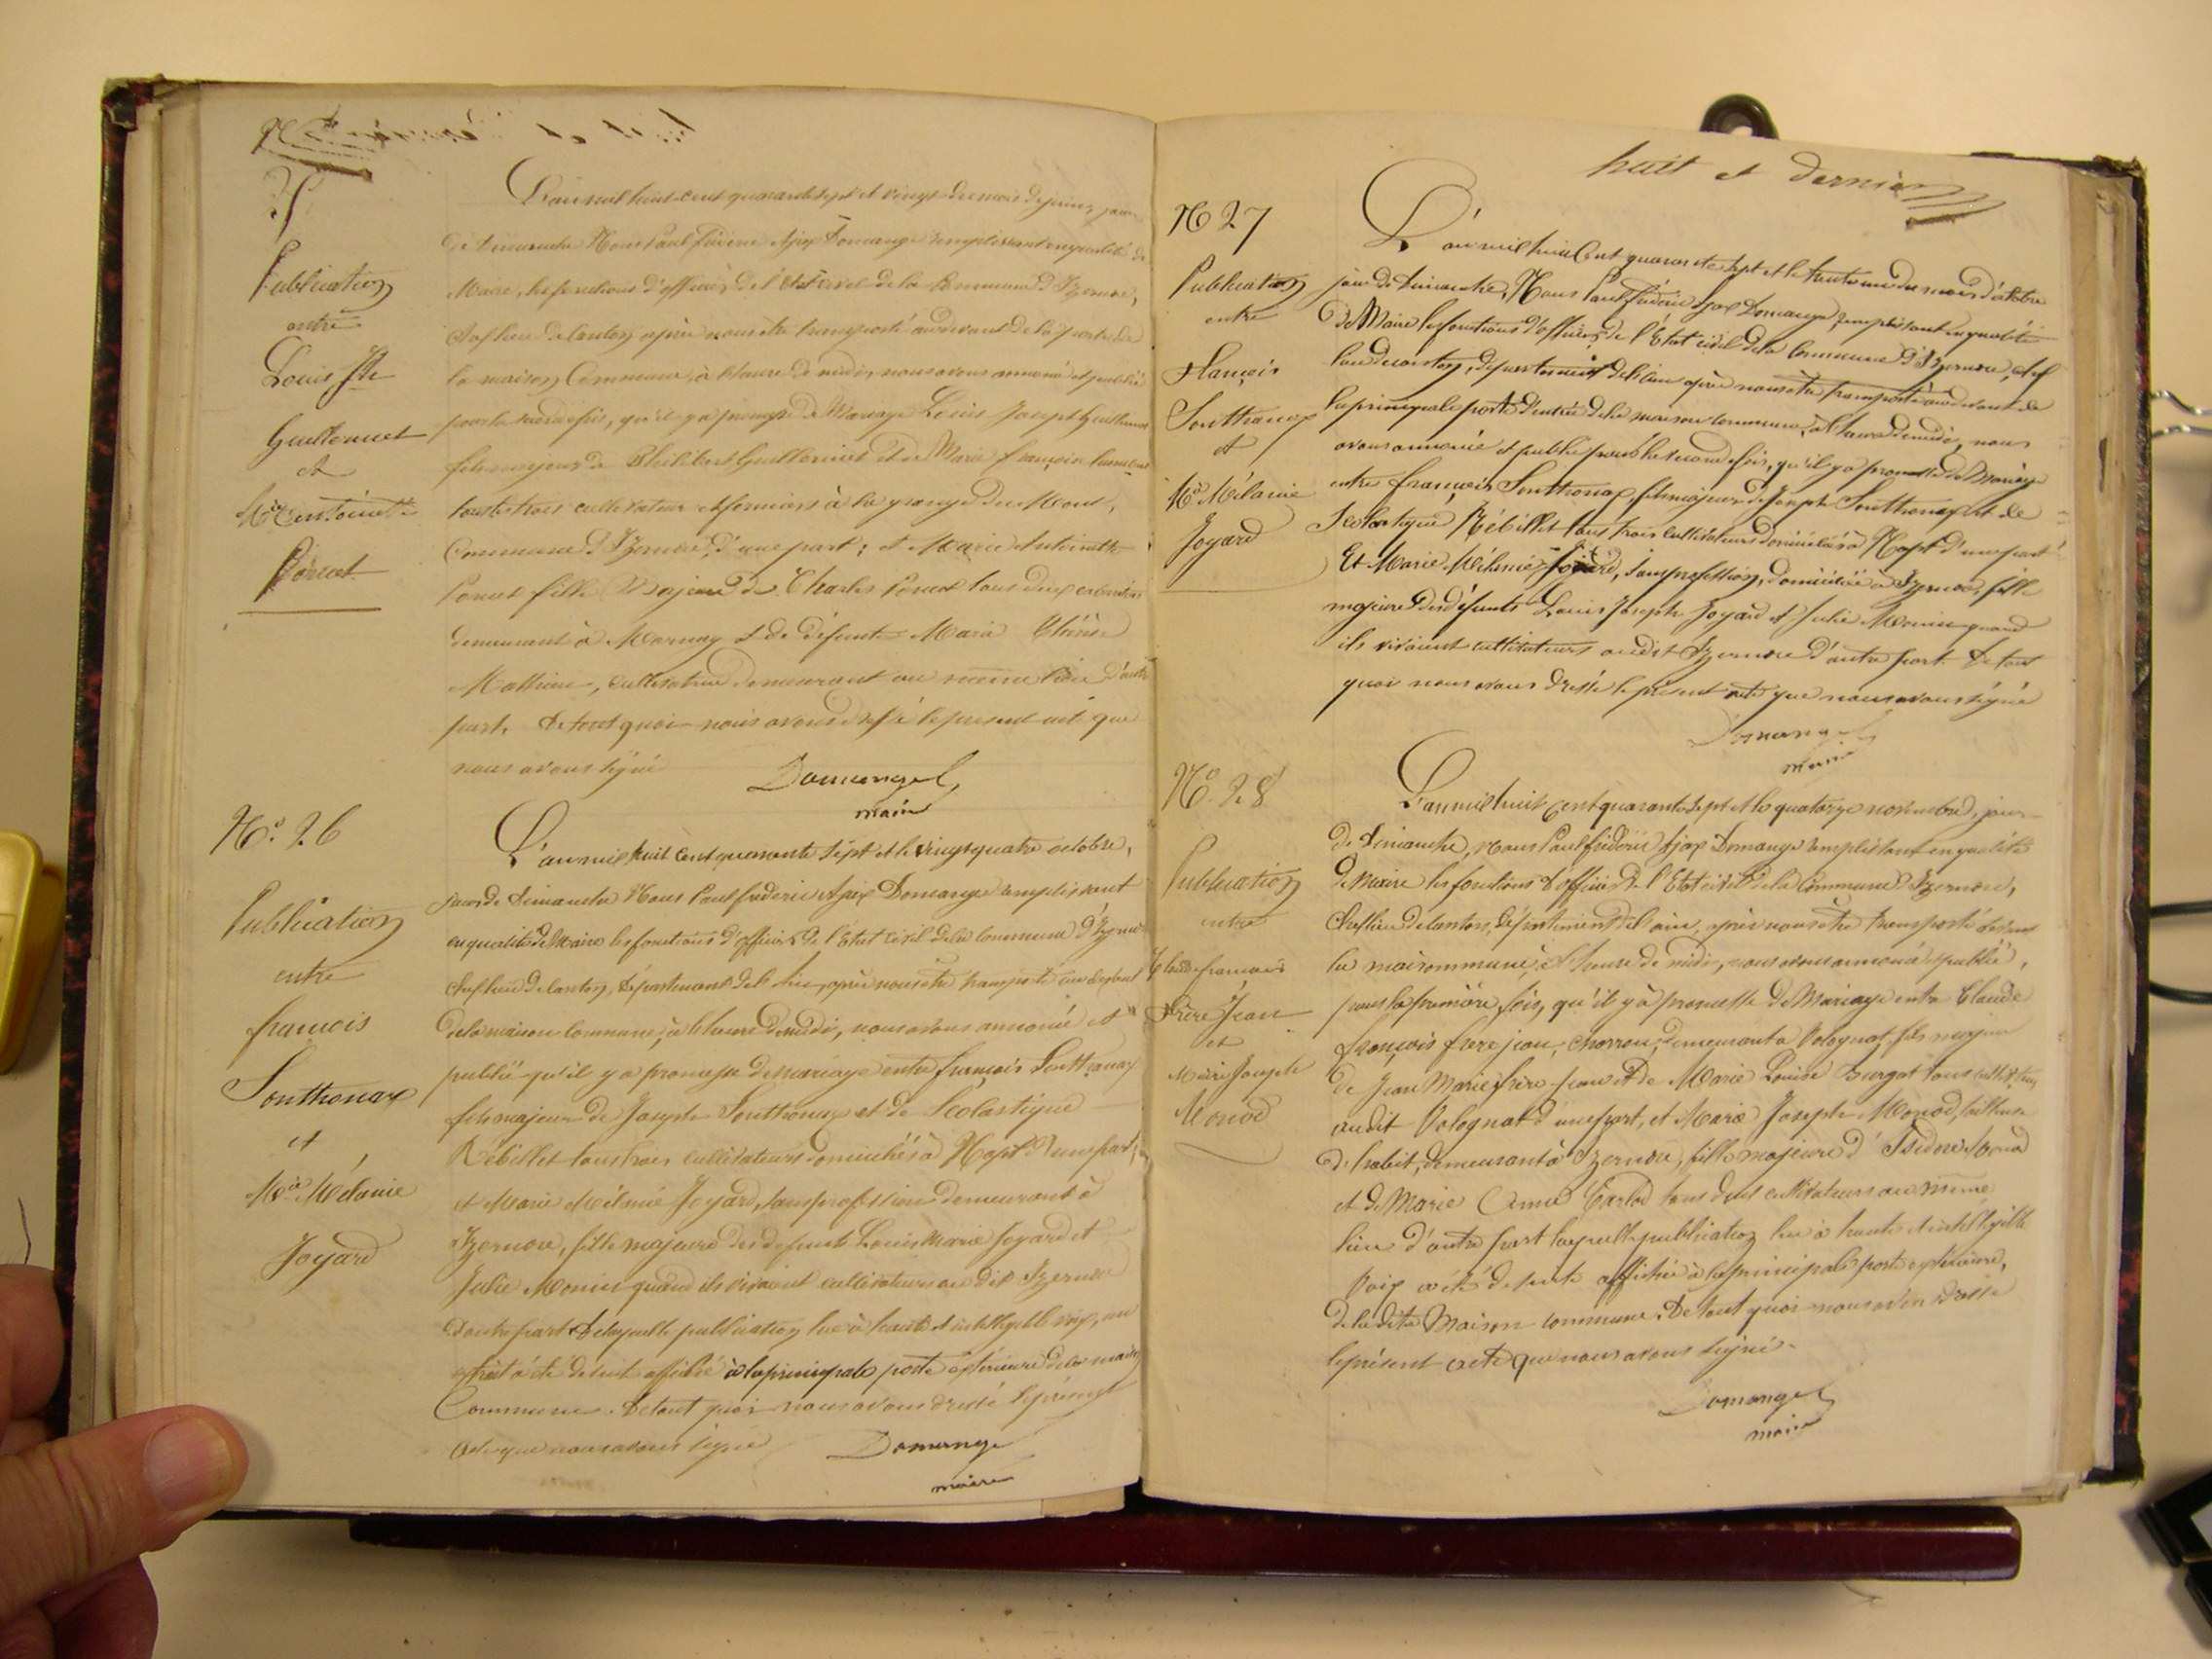 Publication
entre
Louis Jh
Guillermet
et
Mie Antoinette
Poncet
L'an mil huit cent quarante sept et vingt du mois de juin, jour
de Dimanche Nous Paul fréderic Ajax Domange remplissant en qualité de
Maire, les fonctions d'officier de l'Etat civil de la Commune d'Izernore,
Chef lieu de canton après nous être transporté au devant de la porte de
la maison Commune, à l'heure de midi, nous avons annoncé et publié
pour la seconde fois, qu'il y a promesse de Mariage Louis Joseph Guillermet
fils majeur de Philibert Guillermet et de Marie françoise
tous les trois cultivateurs et fermiers à la grange du Mont,
Commune d'Izernore, d'une part ; et Marie Antoinette
Poncet fille Majeure de Charles Poncet tous deux cultivateurs
demeurant à Marnay et de défunte Marie
Mathieu, cultivatrice demeurant au même lieu d'autre
part. De tout quoi nous avons dressé le présent acte que
nous avons signé
Domange
maire
No. 26
Publication
entre
françois
Sonthonax
et
Mie Mélanie
Joyard
L'an mil huit cent quarante sept et le vingt quatre octobre,
jour de Dimanche Nous Paul fréderic Ajax Domange remplissant
en qualité de Maire les fonctions d'officier de l'Etat civil de la Commune d'Izernore
Chef lieu de canton, département de l'Ain, après nous être transporté au devant
de la maison Commune, à l'heure de midi, nous avons annoncé et
publié qu'il y a promesse de mariage entre françois Sonthonax
fils majeur de Joseph Sonthonax et de Scolastique
Rébillet tous trois cultivateurs domiciliés à Napt d'une part ;
et Marie Mélanie Joyard, sans profession demeurant à
Izernore, fille majeure des défunts Louis Marie Joyard et
Julie Monin quand ils vivaient cultivateurs au dit Izernore
d'autre part De laquelle publication lue à haute et intelligible voix, un
extrait a été de suite affiché à la principale porte extérieure de la maison
Commune. De tout quoi nous avons dressé le présent
acte que nous avons signé
Domange
maire
huit et dernier
No 27
Publication
entre
François
Sonthonax
et
Mie Mélanie
Joyard
L'an mil huit Cent quarante sept et le trente un du mois d'octobre
jour de Dimanche, Nous Paul fréderic Ajax Domange, remplissant en qualité
de Maire les fonctions d'officier de l'Etat civil de la Commune d'Izernore, chef
lieu de canton, département de l'ain après nous être transporté au devant de
la principale porte d'entrée de la maison commune, à l'heure de midi, nous
avons annoncé et publié pour la seconde fois, qu'il y a promesse de Mariage
entre françois Sonthonax, fils majeur de Joseph Sonthonax et de
Scolastique Rébillet tous trois cultivateurs domiciliés à Napt d'une part
Et Marie Mélanie Joyard, sans profession, domiciliée à Izernore, fille
majeure des défunts Louis Joseph Joyard et Julie Monin quand
ils vivaient cultivateurs audit Izernore d'autre part De tout
quoi nous avons dressé le présent acte que nous avons signé
Domange
maire
No. 28
Publication
entre
Claude françois
Frère Jean
et
Marie Joseph
Monod
L'an mil huit Cent quarante sept et le quatorze novembre, jour
de Dimanche, nous Paul fréderic Ajax Domange remplissant en qualité
de Maire les fonctions d'officier de l'Etat civil de la Commune d'Izernore,
Chef lieu de canton, département de l'ain, après nous être transporté devant
la maison commune, à l'heure de midi, nous avons annoncé et publié,
pour la première fois, qu'il y a promesse de Mariage entre Claude
françois frere jean, charron, demeurant à Volognat, fils majeur
de Jean Marie frère jean et de Marie Louise Burgat tous cultivateurs
audit Volognat d'une part, et Marie Joseph Monod, tailleuse
d'habit, demeurant à Izernore, fille majeure d'Isidore Monod
et de Marie Anne Carlod tous deux cultivateurs au même
lieu d'autre part laquelle publication lue à haute et intelligible
voix a été de suite affichée à la principale porte extérieure,
de la dite Maison commune. De tout quoi nous avons dressé
le présent acte que nous avons signé.
Domange
maire